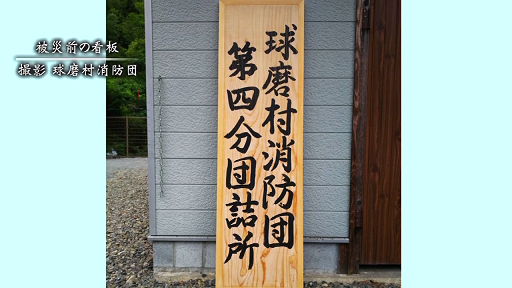 被災前の看板
撮影 球磨村消防団
球磨村消防団
第四分団詰所